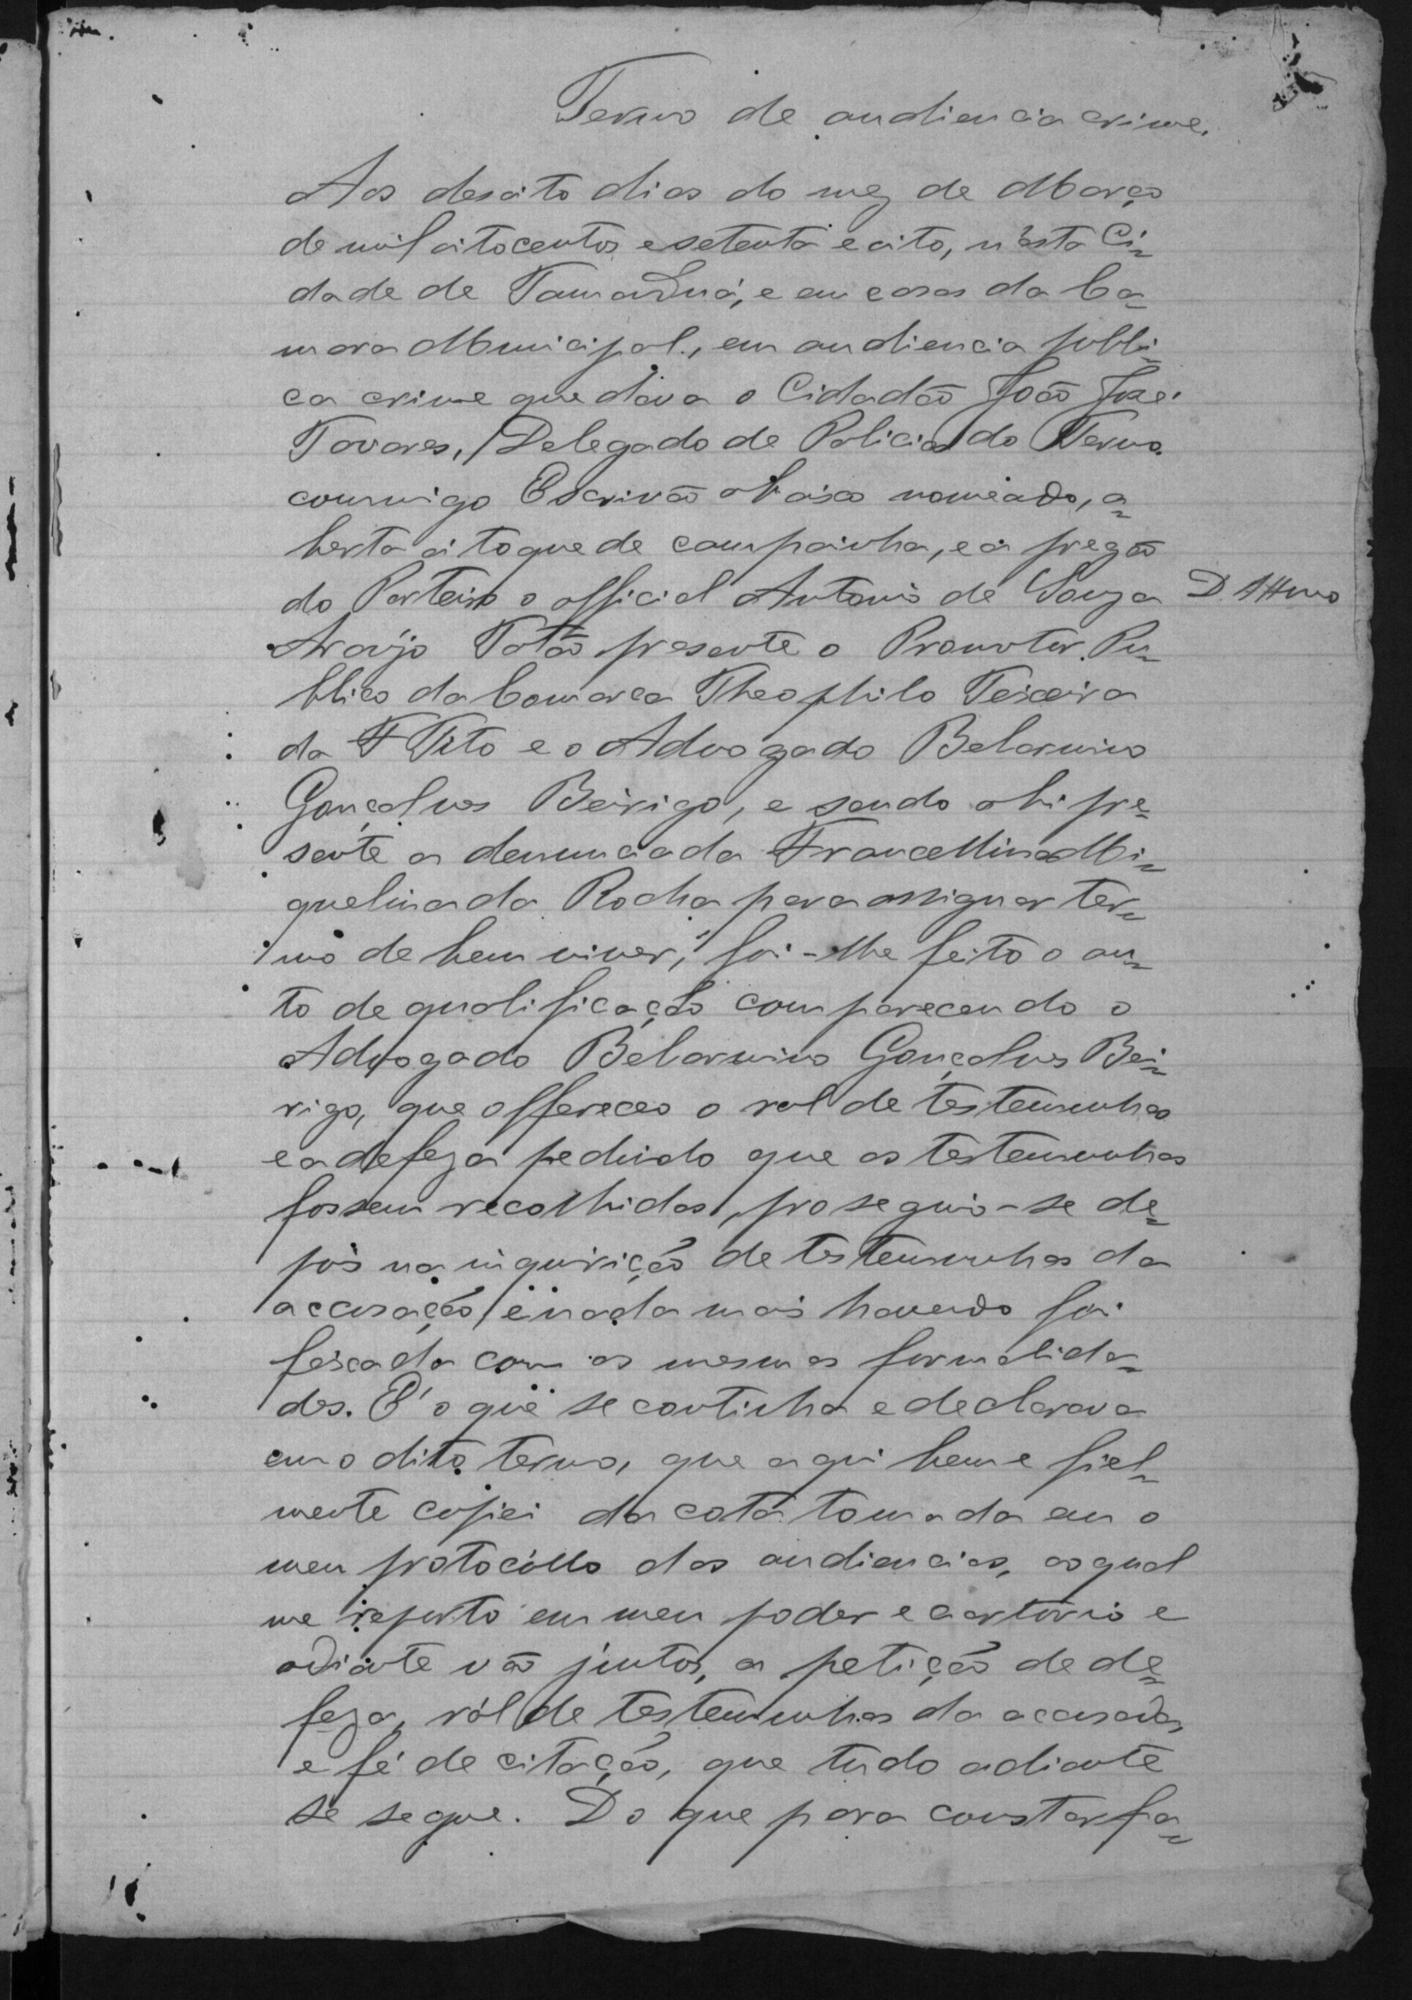 Termo de audiencia crime.
Aos desoito dias do mez de Março
de mil oitocentos e setenta e oito, n'esta Ci=
dade de Tamanduá, e em casas da Ca=
mara Municipal, em audiencia publi=
ca crime que dava o Cidadão João Jose
Tavares, Delegado de Policia do Termo
commigo Escrivão abaixo nomeado, a=
berta a toque de campainha, e a pregão
do Porteiro o official Antonio de Souza
Araújo Totão presente o Promotor Pu=
blico da Comarca Theophilo Teixeira
da F Tito e o Advogado Belarmino
Gonçalves Beirigo, e sendo ahi pre=
sente a denunciada Francellina Mi=
quelina da Rocha para assignar ter=
mo de bem viver, foi-lhe feito o au=
to de qualificação comparecendo o
Advogado Belarmino Gonçalves Bei=
rigo, que offereceo o rol de testemunhas
e a defeza pedindo que as testemunhas
fossem recolhidas, proseguio-se de=
pois na inquirição de testemunhas da
accusação, e nada mais havendo foi
feixada com as mesmas formalida=
des. E' o que se continha e declarava
em o dito termo, que aqui bem e fiel=
mente copiei da cota tomada em o
meu protocóllo das audiencias, ao qual
me reporto em meu poder e cartorio e
adiante vão juntos, a petição de de=
feza, ról de testemunhas da accusada,
e fé de citação, que tudo adiante
se segue. Do que para constar fa=